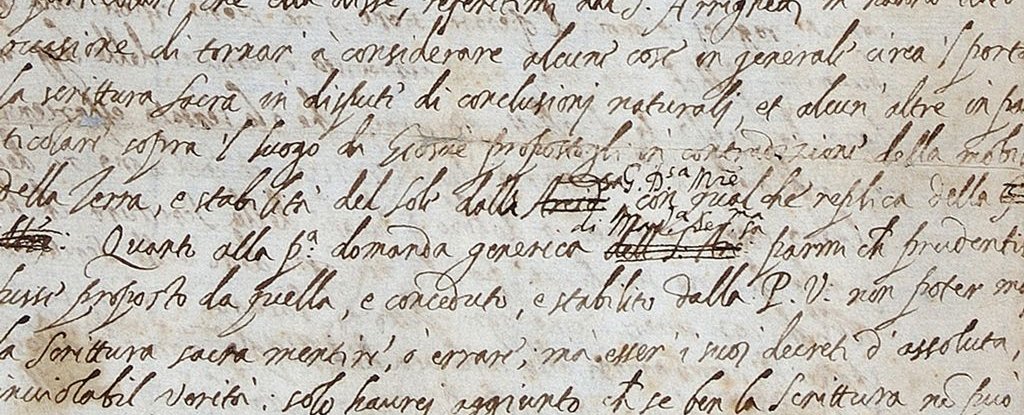 ticolari che ella disse, referitimi dal S. Arrighetti,
occasione di tornar' à considerare alcune cose in generale circa 'l porta
la scrittura sacra in dispute di conclusioni naturali, et alcun' altre in pa
ticolare sopra 'l luogo di Giosuè propostogli in contradizione della mobi
G. D.sa M.re
della Terra, e stabilità del Sole dalla con qualche replica della
di Mad.a Ser.ma
Quanto alla p.a domanda generica parmi ch prudenti
fusse proposto da quella, e conceduto, e stabilito dalla P. V. non poter ma
la scrittura sacra mentire, ò errare, ma esser' i suoi decreti d' assoluta,
inviolabil verità: solo haurei aggiunto ch se ben la scrittura nō può